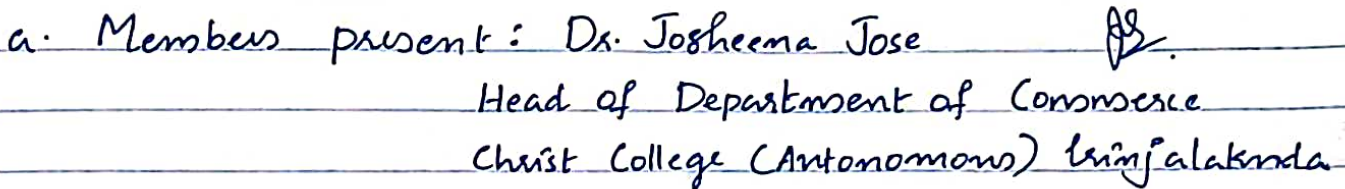 a. Members present : Dr. Josheena Jose
Head of Department of Commerce
Christ College (Autonomous) Irinjalakuda